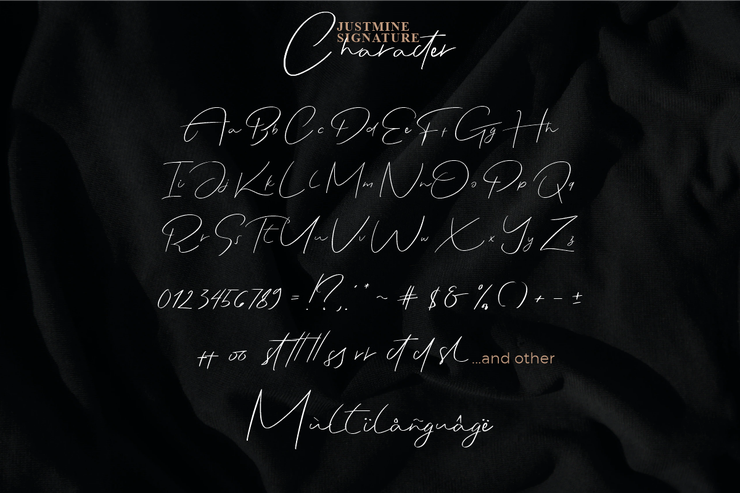 JUSTMINE
SIGNATURE
Character
Aa Bb Cc Dd Ee Ff Gg Hh
Ii Jj Kk Ll Mm Nn Oo Pp Qq
Rr Ss Tt Uu Vv Ww Xx Yy Zz
0123456789 = !? ; , : ' " * ~ # $ & % ( ) + - ±
tt oo st ttt ll ss rr ct cl sl ...and other
Mùltïlåñguâgë